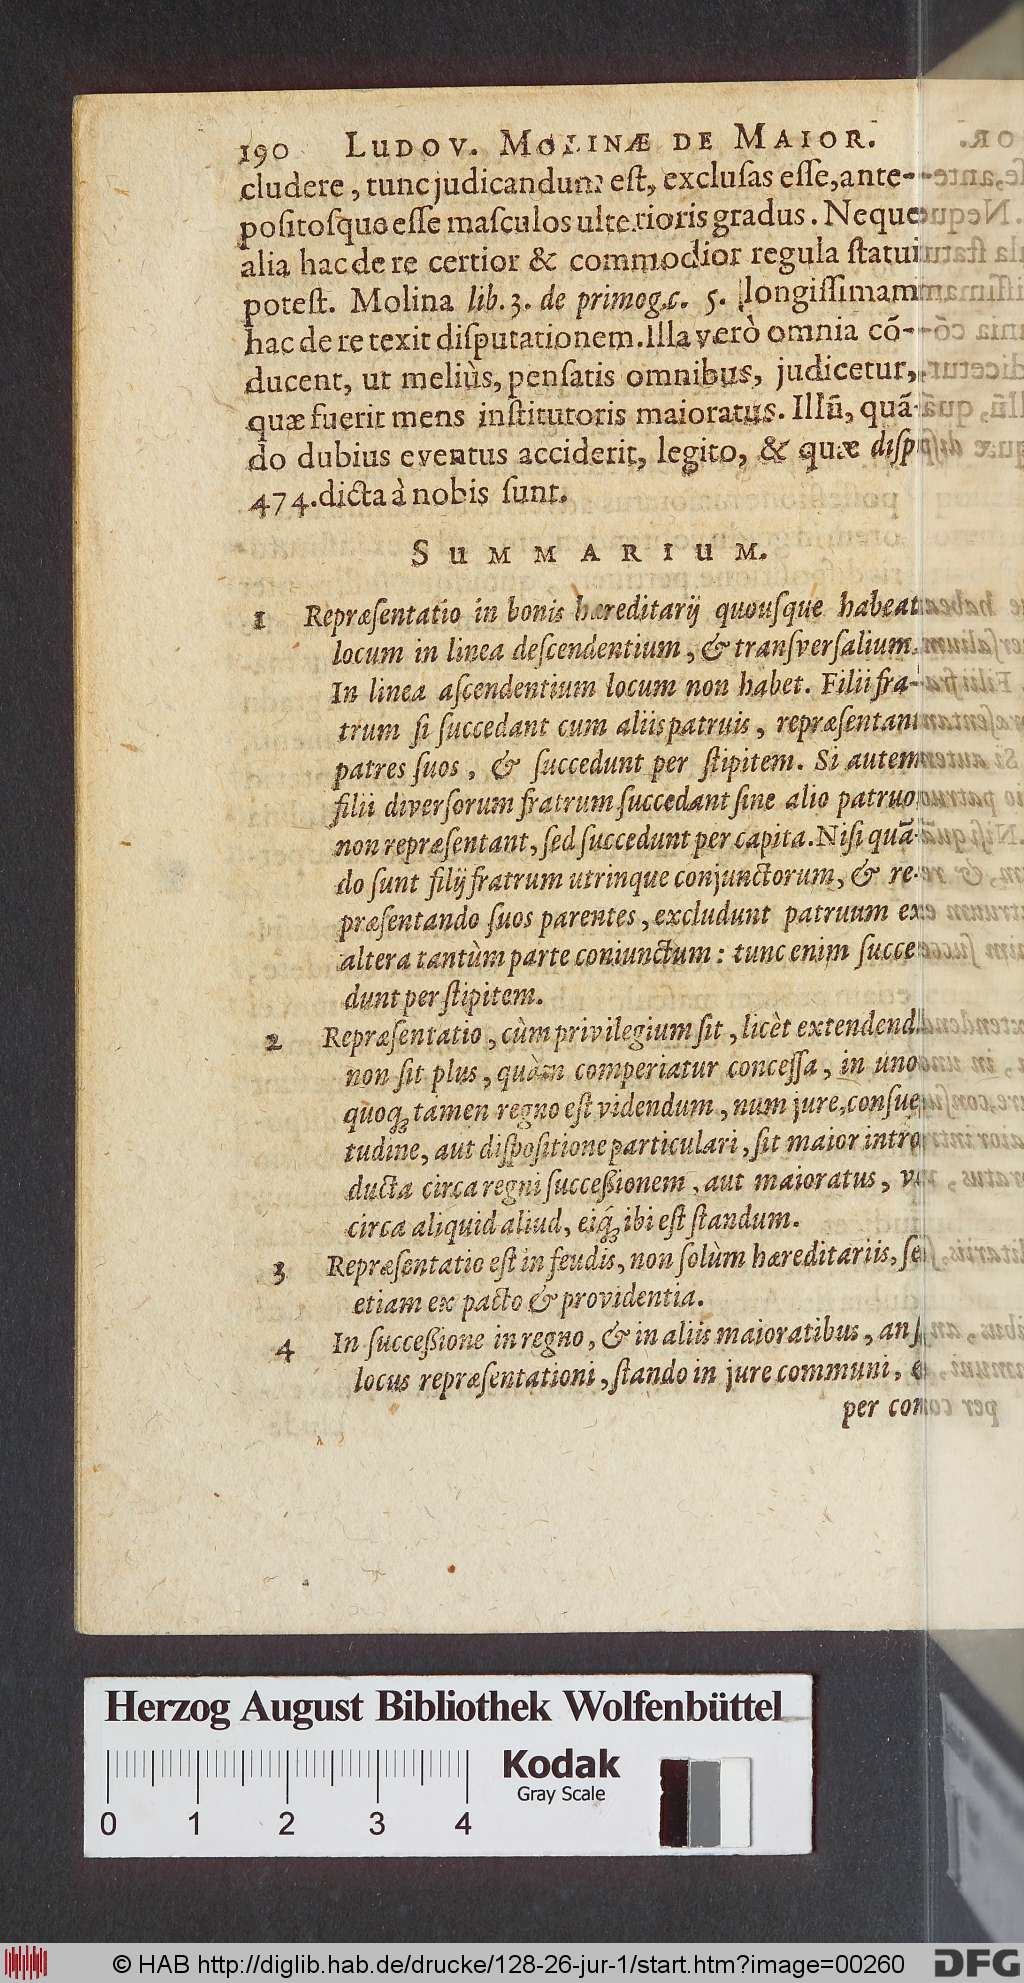 190 LUDOV. MOLINÆ DE MAIOR.
cludere, tunc judicandum eſt, excluſas eſſe, ante-
poſitoſque eſſe maſculos ulterioris gradus. Neque
alia hac de re certior & commodior regula ſtatui
poteſt. Molina lib. 3. de primog. c. 5. longiſſimam
hac de re texit diſputationem. Illa verò omnia cō-
ducent, ut meliùs, penſatis omnibus, judicetur,
quæ fuerit mens inſtitutoris maioratus. Illū, quā-
do dubius eventus acciderit, legito, & quæ diſp
474. dicta à nobis ſunt.
SUMMARIUM.
1 Repræſentatio in bonis hæreditarij quouſque habeat
locum in linea deſcendentium, & tranſverſalium.
In linea aſcendentium locum non habet. Filii fra-
trum ſi ſuccedant cum aliis patruis, repræſentant
patres ſuos, & ſuccedunt per ſtipitem. Si autem
filii diverſorum fratrum ſuccedant ſine alio patruo
non repræſentant, ſed ſuccedunt per capita. Niſi quā-
do ſunt filij fratrum utrinque conjunctorum, & re-
præſentando ſuos parentes, excludunt patruum ex
altera tantùm parte coniunctum: tunc enim ſucce
dunt per ſtipitem.
2 Repræſentatio, cùm privilegium ſit, licèt extendend
non ſit plus, quàm comperiatur conceſſa, in uno
quoq; tamen regno eſt videndum, num jure, conſue
tudine, aut diſpoſitione particulari, ſit maior intro
ducta circa regni ſucceßionem, aut maioratus, v
circa aliquid aliud, eiq́; ibi eſt ſtandum.
3 Repræſentatio eſt in feudis, non ſolùm hæreditariis, ſe
etiam ex pacto & providentia.
4 In ſucceßione in regno, & in aliis maioratibus, an ſ
locus repræſentationi, ſtando in jure communi, &
per con
Herzog August Bibliothek Wolfenbüttel
Kodak
Gray Scale
0 1 2 3 4
© HAB http://diglib.hab.de/drucke/128-26-jur-1/start.htm?image=00260
DFG